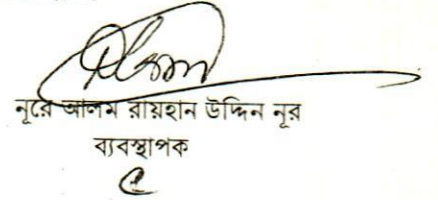 নূরে আলম রায়হান উদ্দিন নূর
ব্যবস্থাপক